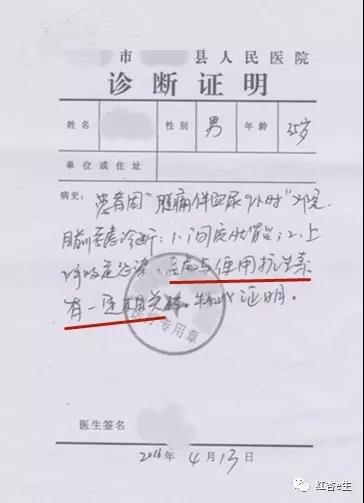 市 县人民医院
诊断证明
姓名 性别 男 年龄 岁
单位或住址
病史：患者因"腰痛伴血尿9小时"来院.
目前考虑诊断：1、间质性肾炎；2、上
呼吸道感染。 与使用抗生素
有一定相关性。特此证明。
专用章
医生签名
2016年4月13日
红杏e生